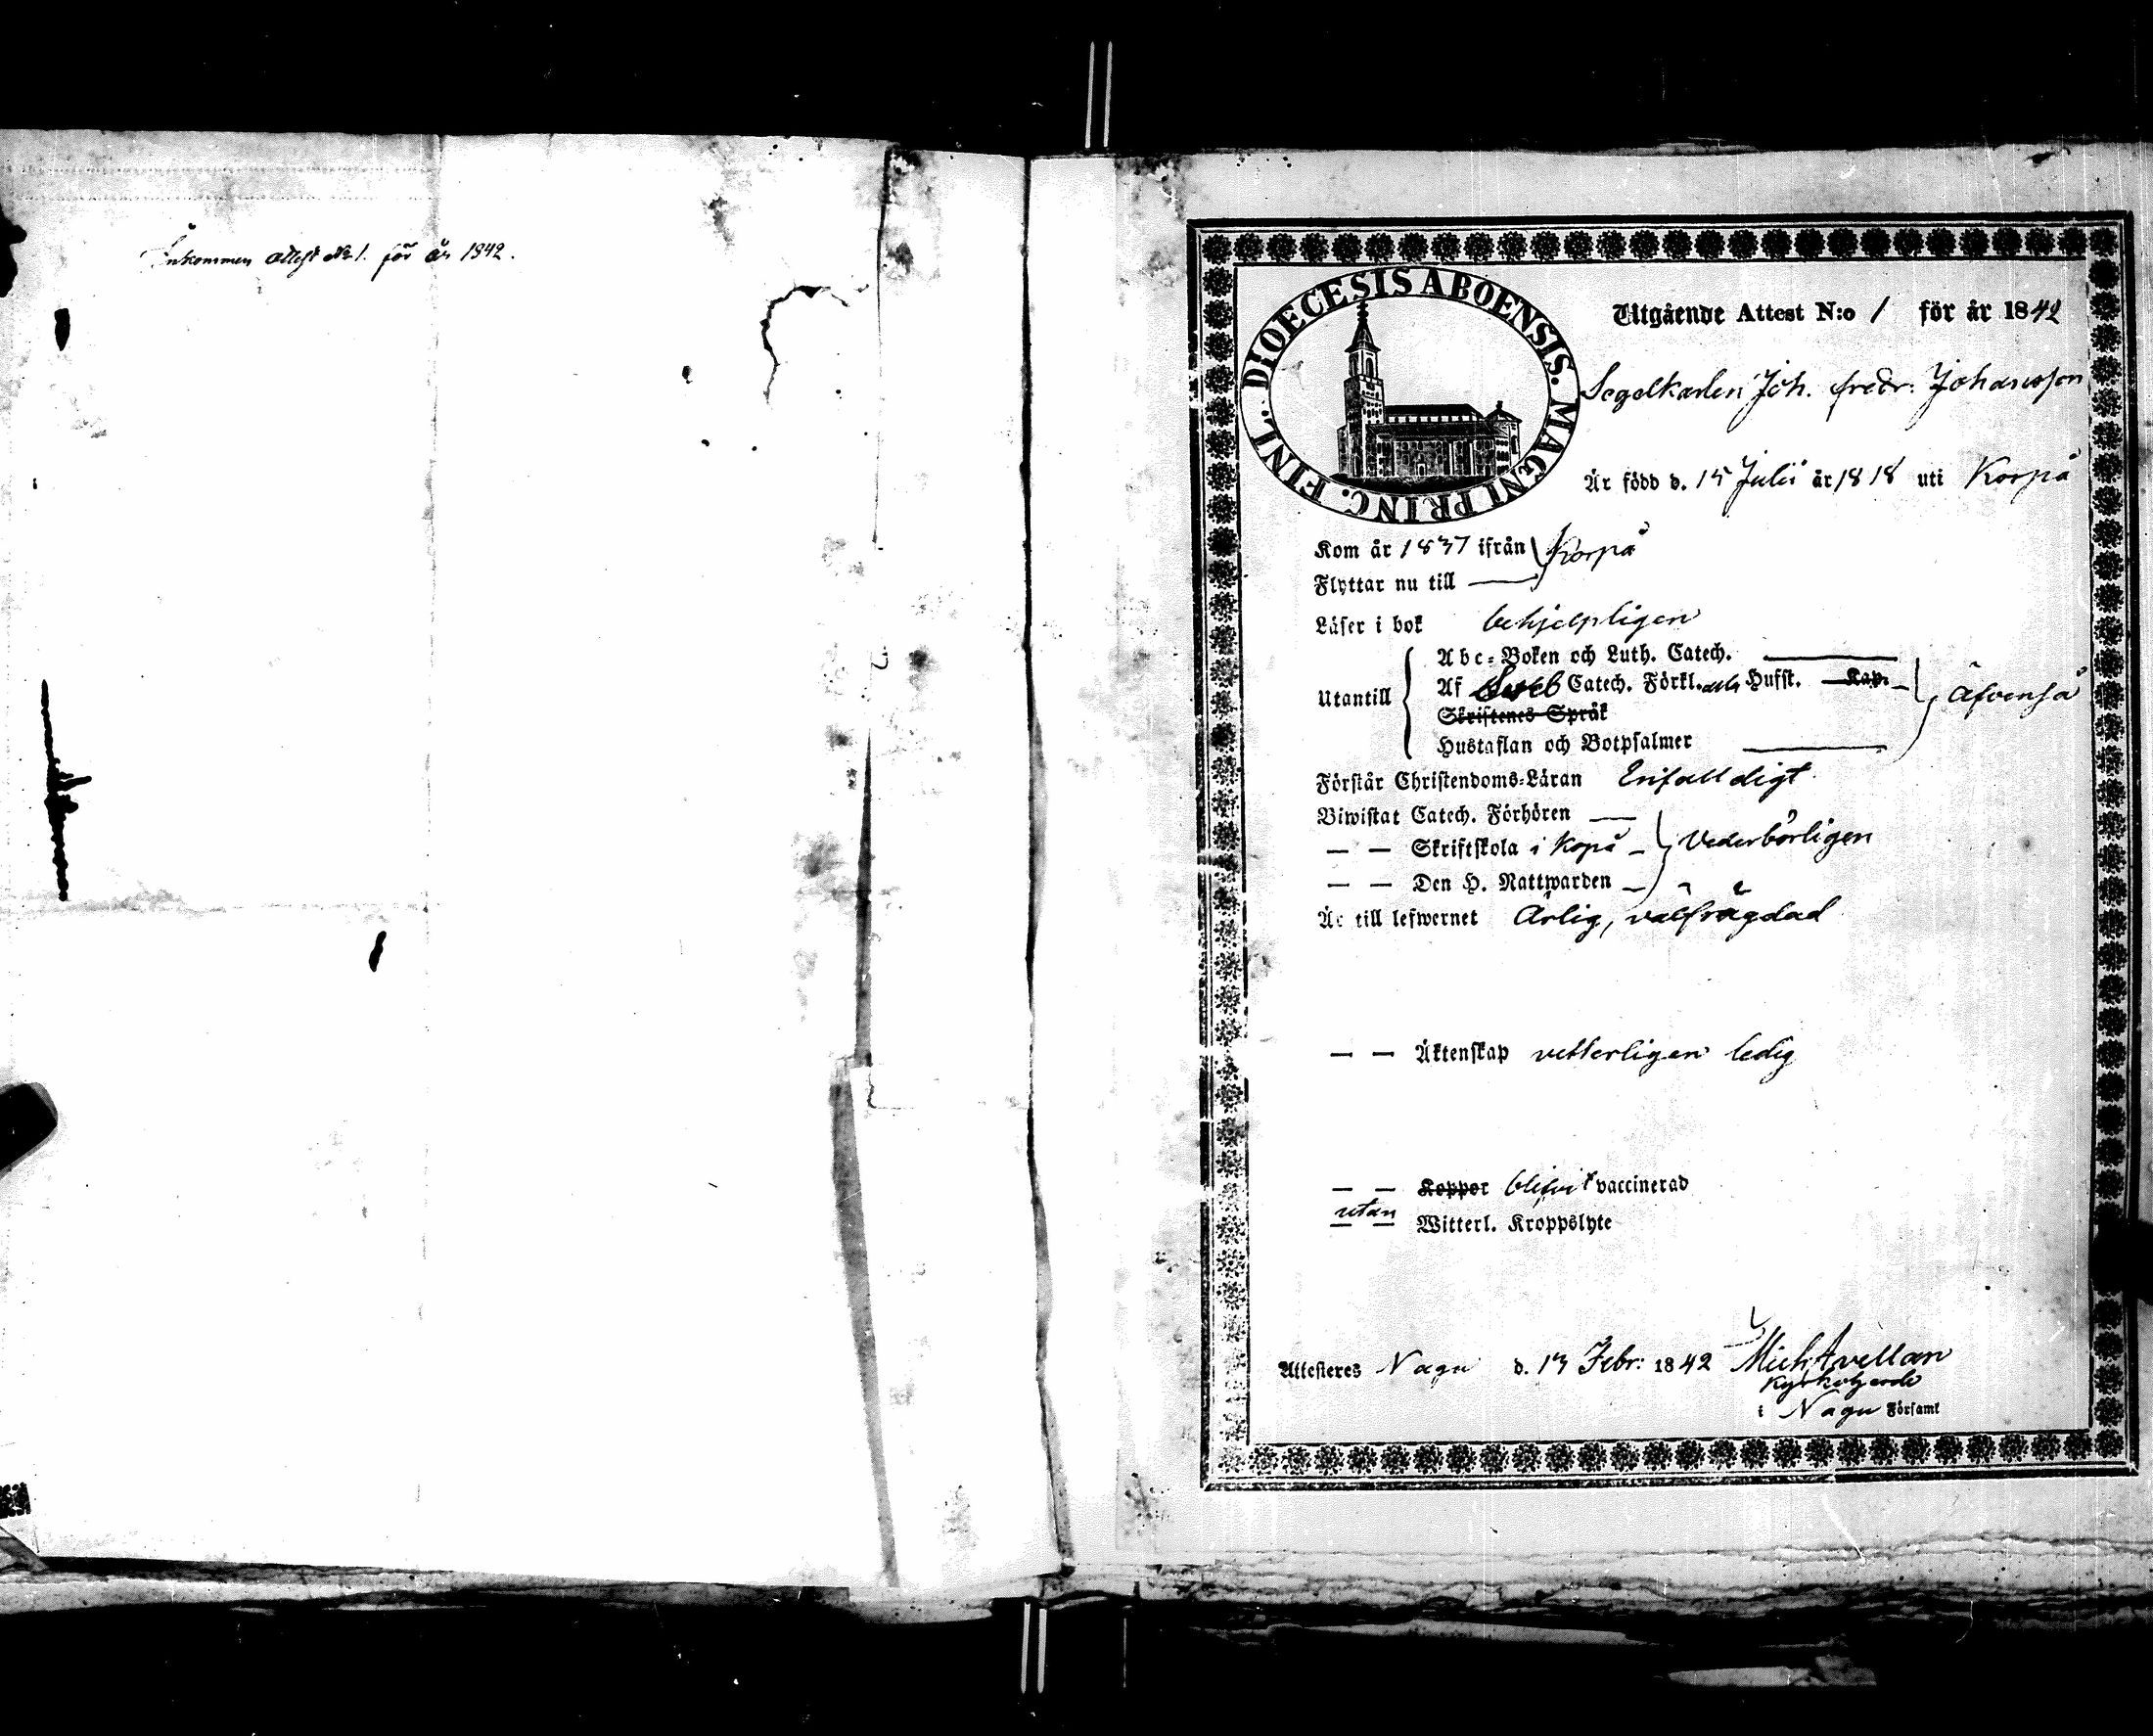 Inkommen attest No 1. för år 1842.
DIOECESIS ABOENSIS. MAGNI PRINC. FINL.
Utgående Attest N:o 1 för år 1842
Segelkarlen Joh. fredr. Johansson
Är född d. 15 Julii år 1818 uti Korpå
Kom år 1837 ifrån Korpå
Flyttar nu till
Läser i bok behjelpligen
Abc-Boken och Luth. Catech.
Utantill Af Catech. Förkl. Hufst. Kap. Äfvenså
Skriftenes Språk
Hustaflan och Botpsalmer
Förstår Christendoms-Läran Enfalldigt
Biwistat Catech. Förhören
— — Skriftskola i Kopå Vederbörligen
— — Den H. Nattwarden
Är till lefwernet Ärlig, välfrägdad
— — Äktenskap vetterligen ledig
— — Koppor blifvit vaccinerad
utan
— — Witterl. Kroppslyte
Attesteres Nagu d. 13 Febr: 1842 Mich Avellan
Kyrkoherde
i Nagu Församl